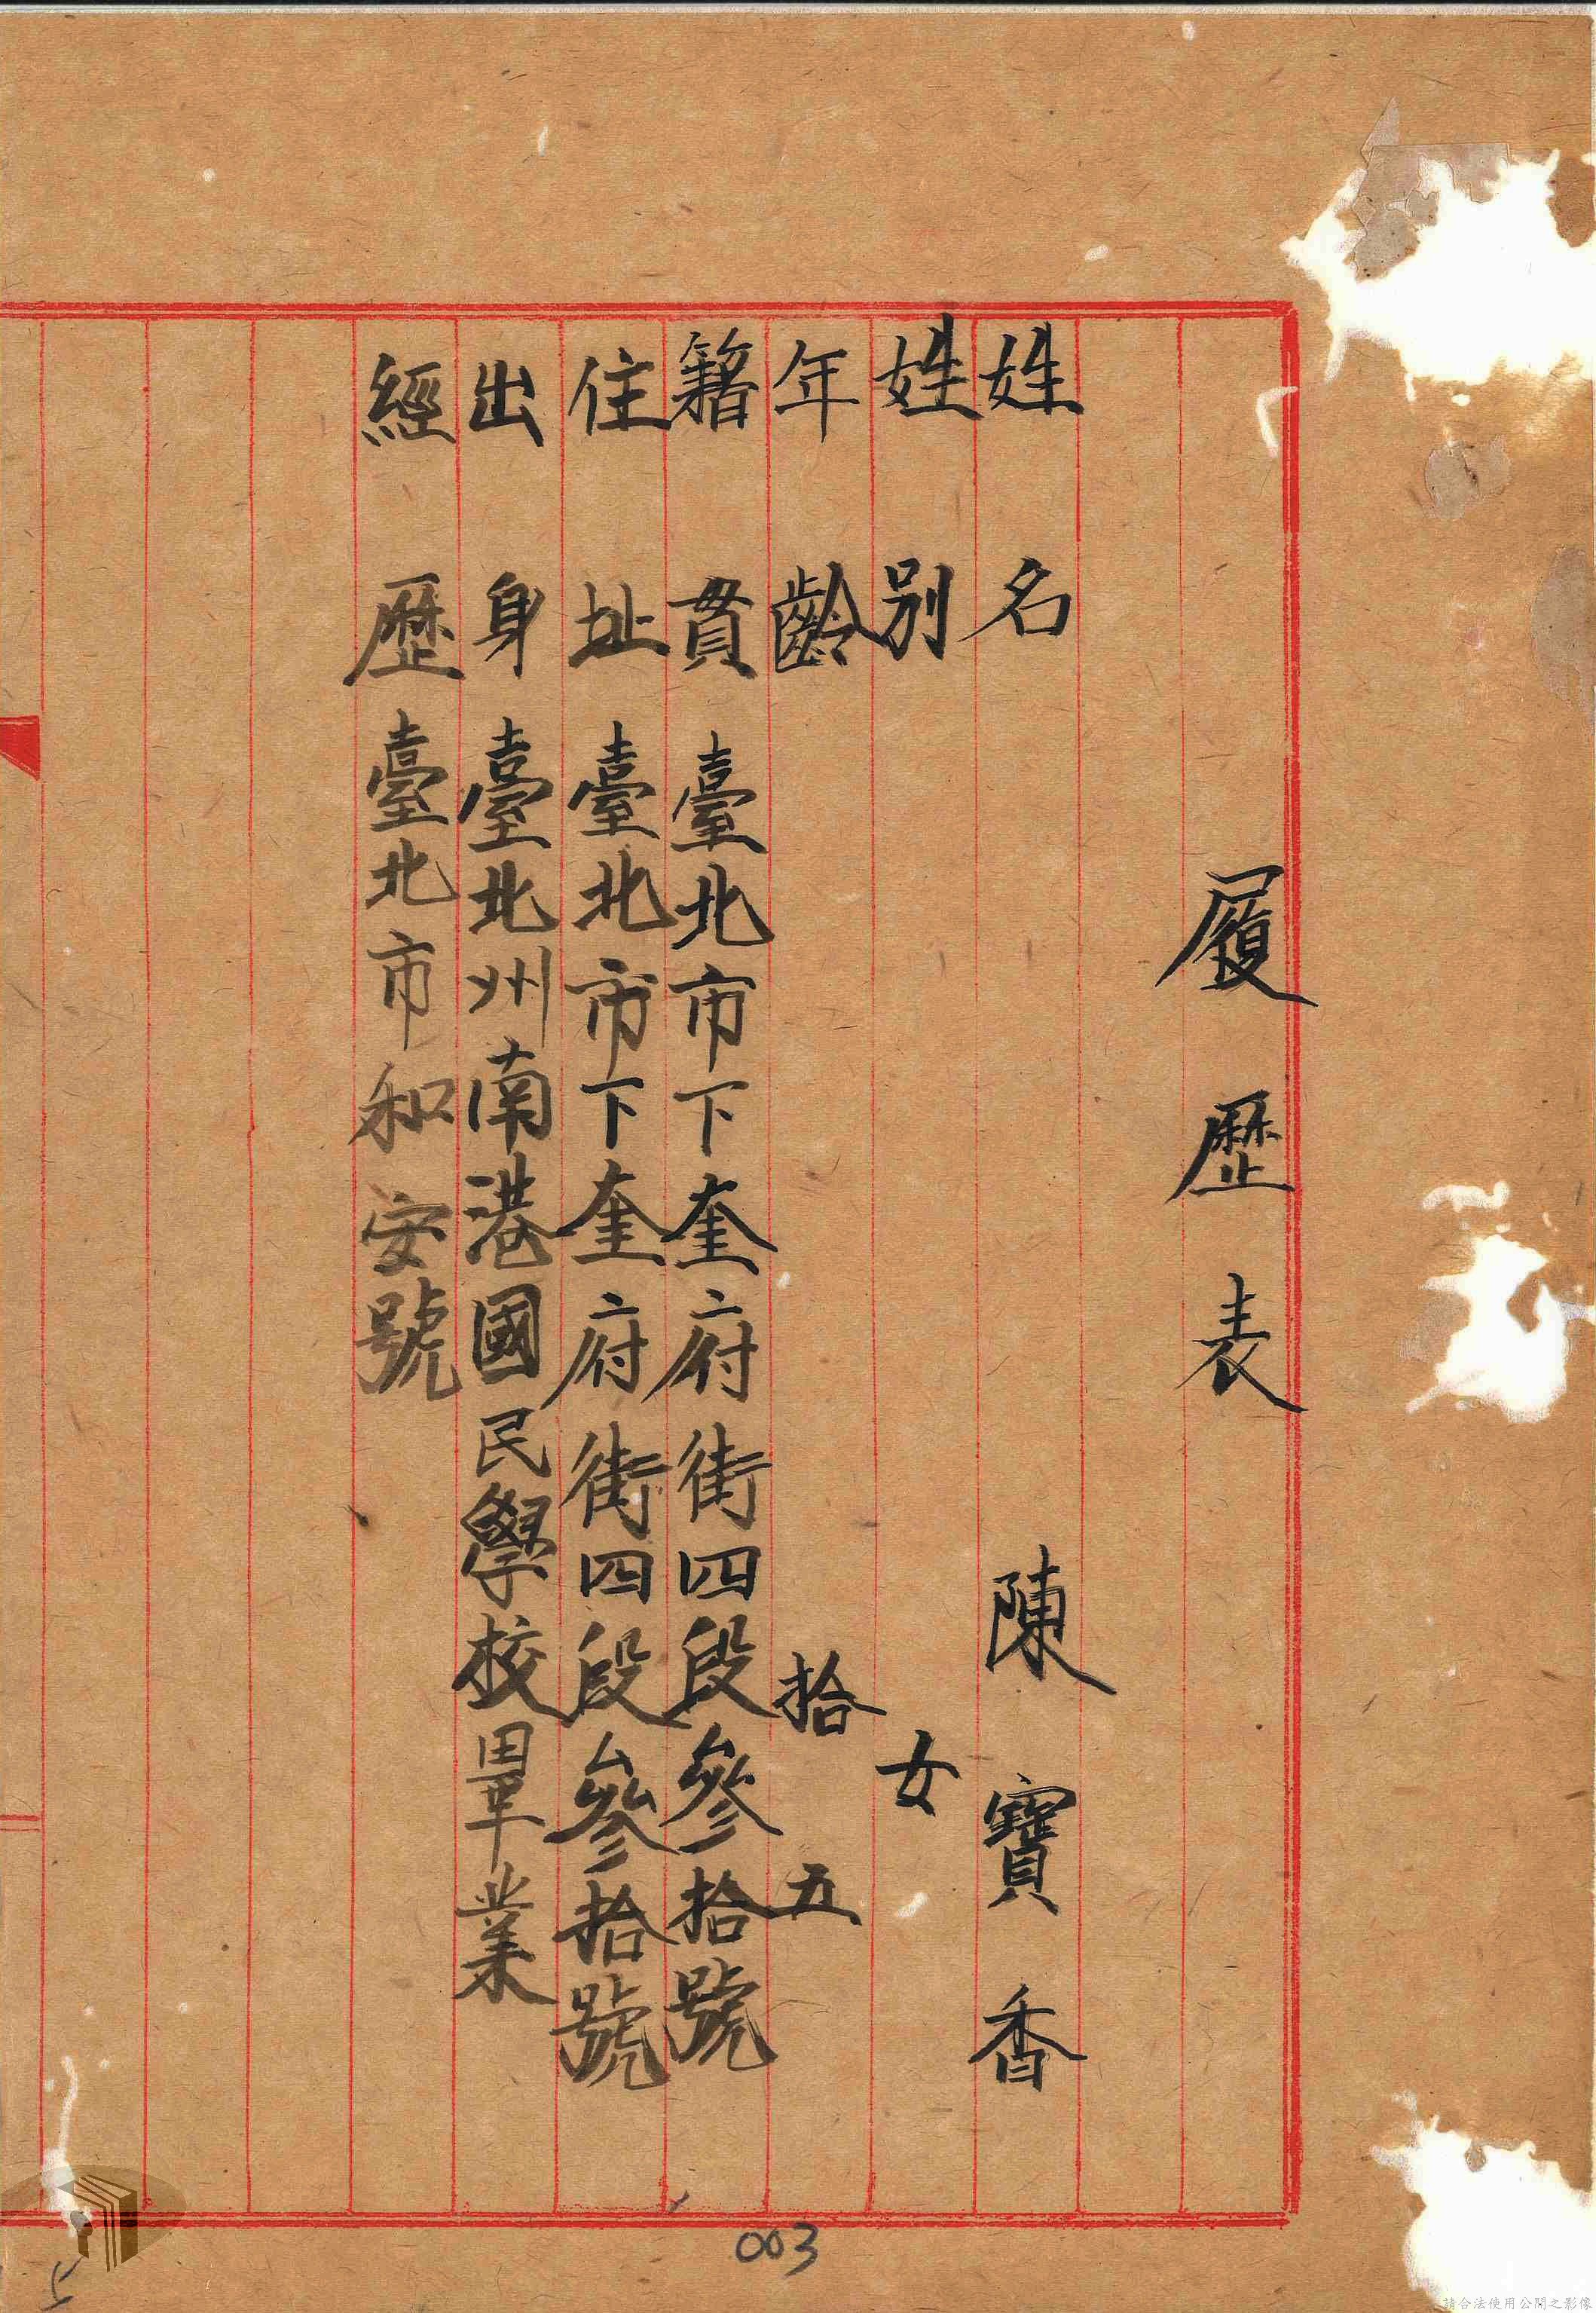 履歷表
姓名 陳寶香
姓別 女
年齡 拾五
籍貫 臺北市下奎府街四段參拾號
住址 臺北市下奎府街四段參拾號
出身 臺北州南港國民學校畢業
經歷 臺北市和安號
003
請合法使用公開之影像